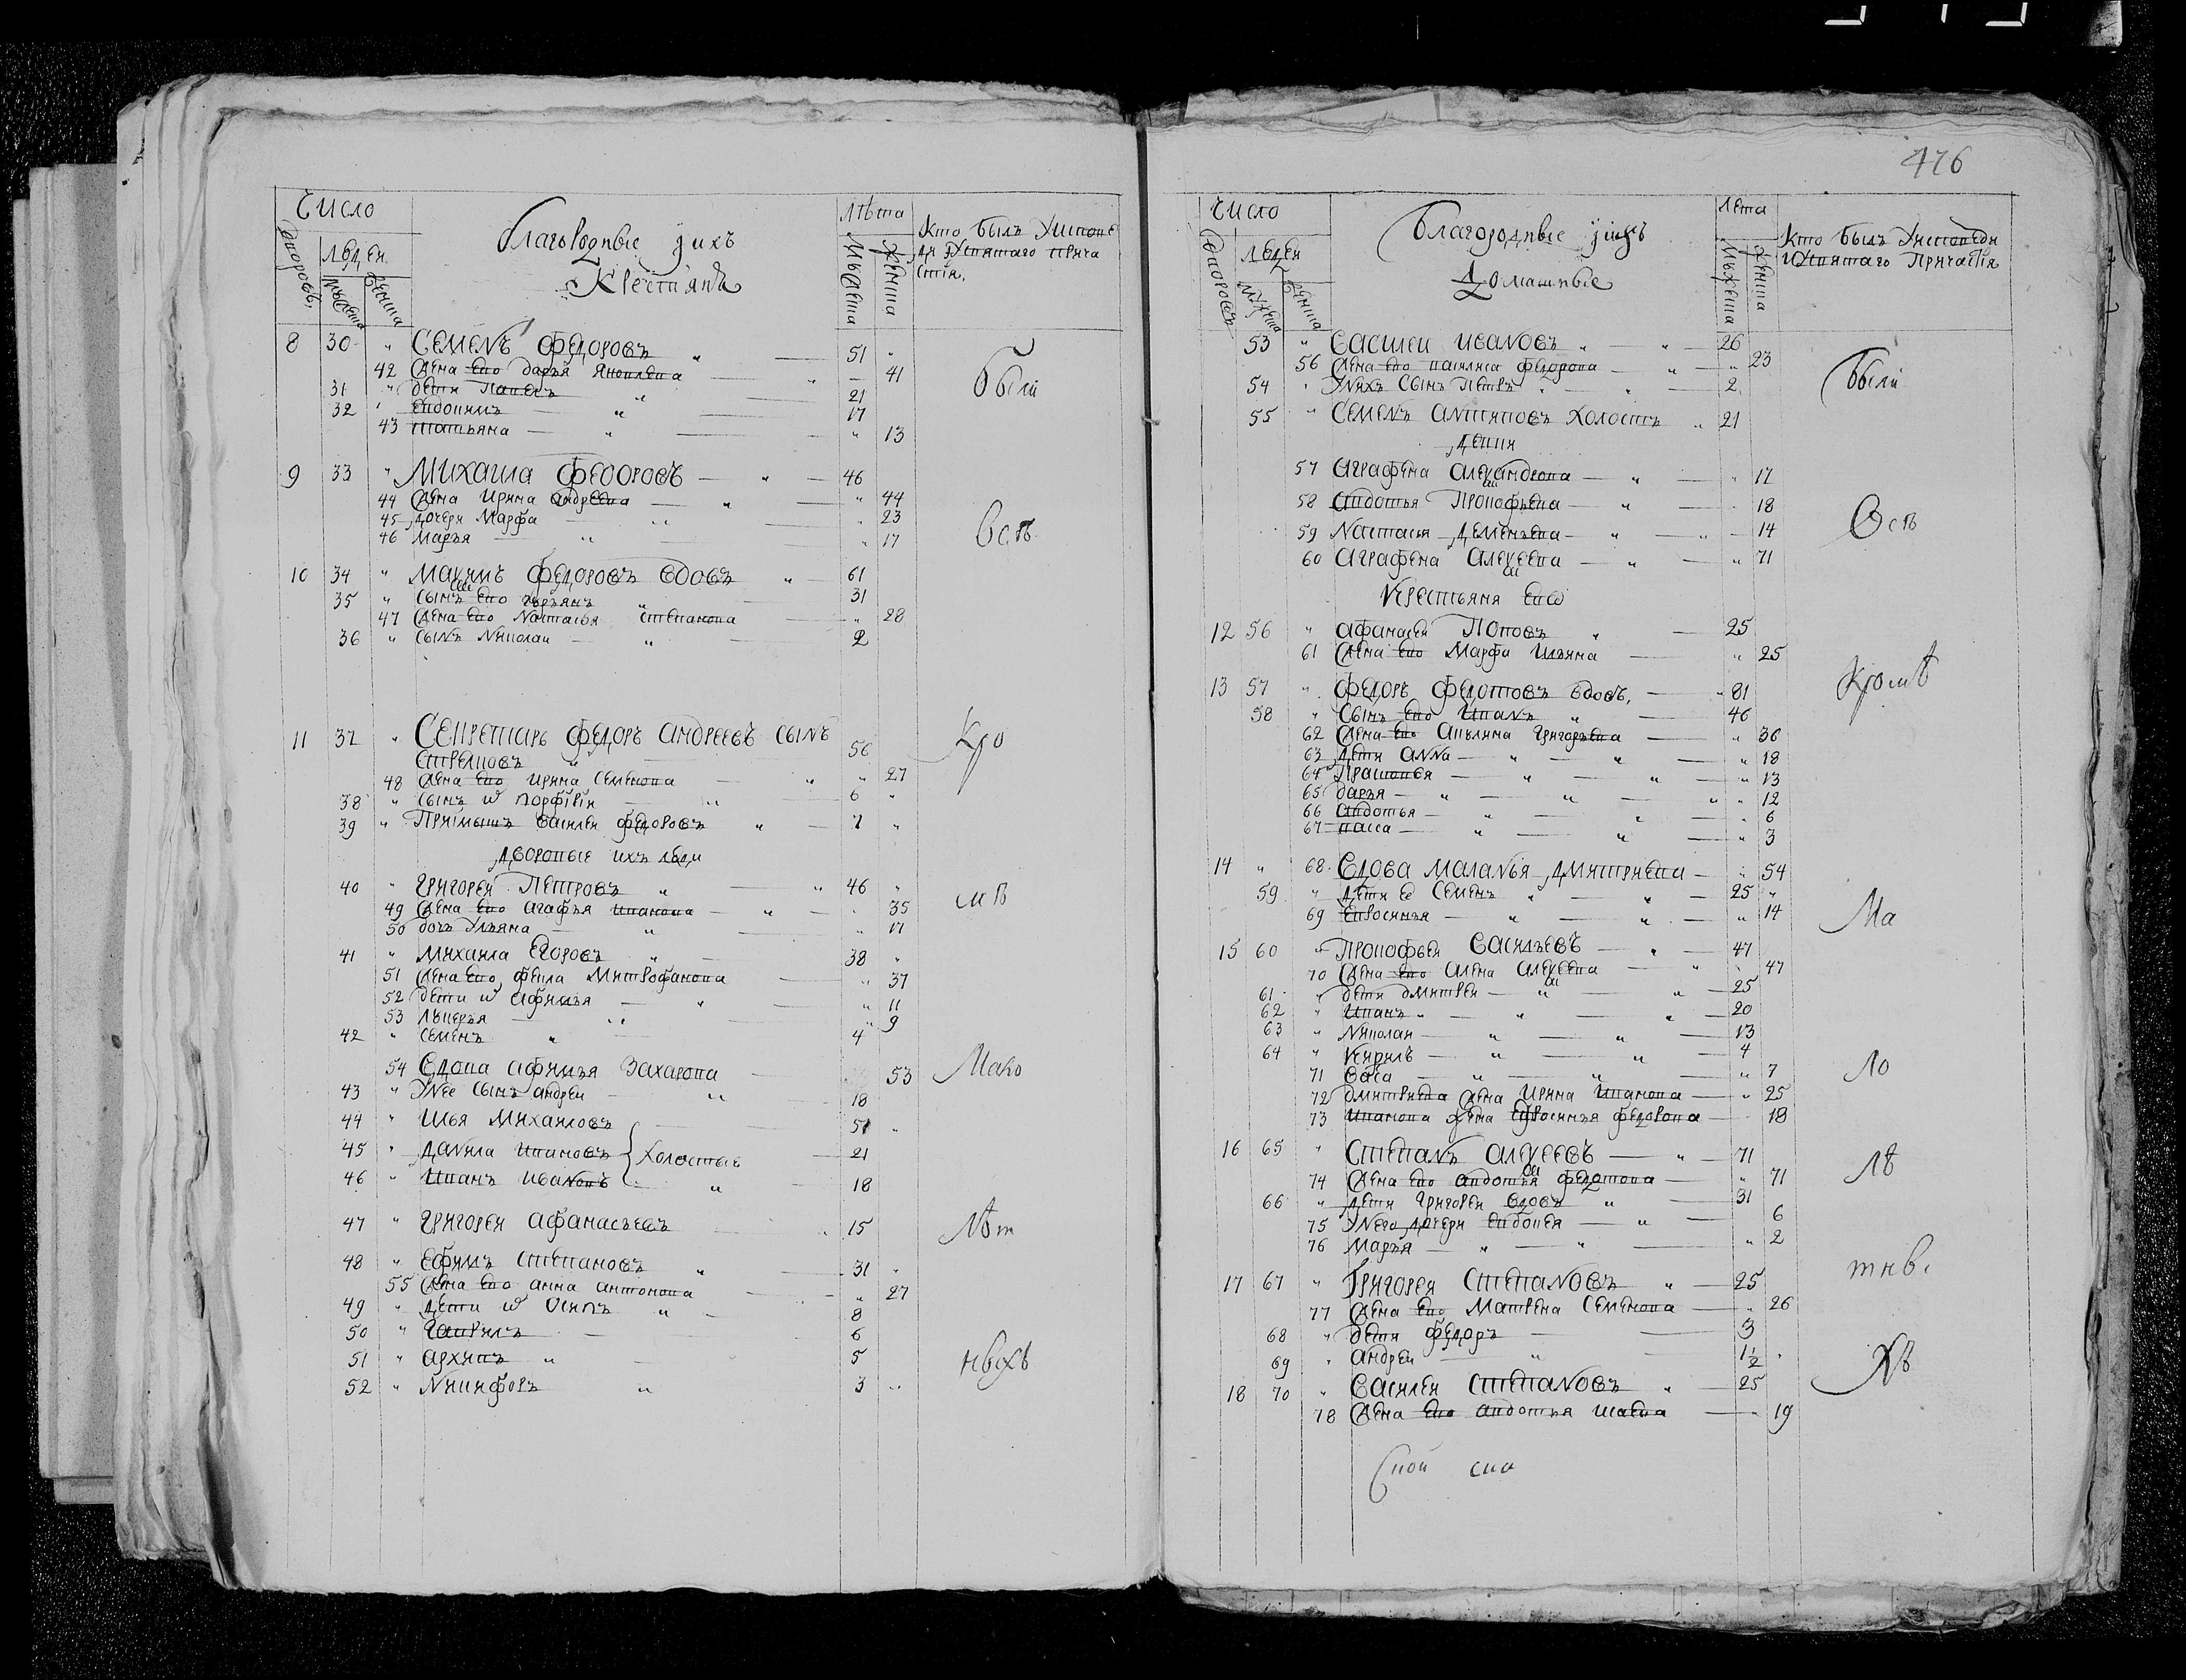 Число
Благородные уихъ
Лѣта
Кто былъ Уиспове
ди ѝУсвятаго прича
стія.
дворовъ,
Людеи
Крестіянѣ
Мужеска
Женска
Мужеска
Женска
8 30 " Семенъ Федоровъ " 51 "
42 Жена ево дарья Яковлева " 41
31 " дети Павелъ " 21
32 " Евдокимъ " 17
43 татьяна " " 13
были
9 33 " Михаила Федоровъ " 46
44 Жена Ирина андреева " " 44
45 дочери Марфа " " 23
46 Марья " " 17
всѣ
10 34 " Макимъ Федоровъ вдовъ " 61
35 " сынъ ево гурьянъ " 31
47 Жена ево Настасья степанова " 28
36 " сынъ Николаи " 2
11 37 " Секретарь Федоръ андреевъ сынъ
Стрелковъ " 56
48 Жена ево Ирина Семенова " " 27
38 " сынъ ѡ порфїрїи " 6 "
39 " Приімышъ василеи федоровъ " 7 "
Кро
дворовые ихъ люди
40 " григореи Петровъ " " 46 "
49 Жена ево агафья иванова " 35
50 дочь Ульяна " " 17
мѣ
41 " Михаила Егоровъ " 38 "
51 Жена ево, фекла Митрофанова " 37
52 дети ѡ афимья " " 11
53 Лукерья " " 9
42 " семенъ " 4
54 Вдова афимья Захарова 53
Мало
43 " Унее сынъ андреи " 18
44 " Илья Михаиловъ 51 "
45 " данила ивановъ холостые 21
46 " Иванъ ивановъ " 18
47 " григореи афанасьевъ " 15
Лѣт
48 " Ефимъ степановъ " 31 "
55 Жена ево анна антонова " 27
49 " дети ѡ осипъ " 8
50 " гаврилъ 6
51 " архипъ " 5
52 " Никифоръ " 3 "
нвхъ
476
Число
Благородные уихъ
Лета
Кто былъ Уисповеди
иУсвятаго Причастїя
дворовъ
Людеи
Домашные
Мужеска
Женска
Мужеска
Женска
53 " василеи ивановъ " " 26
56 Жена ево василиса федорова " " 23
54 " Унихъ сынъ петръ " " 2
были
55 " Семенъ антиповъ холостъ " 21
девки
57 аграфена александрова " " 17
58 авдотья Прокофьева " 18
59 Настасья дементьева " " 14
60 аграфена алеѯеева " " 71
Всѣ
Крестьяня евѡ
12 56 " афанасеи Поповъ " 25
61 Жена ево Марфа Ильина " 25
Кромѣ
13 57 " Федоръ федотовъ вдовъ, " 81
58 " Сынъ ево Иванъ " 46
62 Жена ево акулина григорьева " 36
63 дети анна " " " 18
64 Прасковья " " " 13
65 дарья " " " " 12
66 авдотья " " " 6
67 васса " " " 3
14 " 68 Вдова маланья дмитриева " 54
59 " дети ее семенъ " " 25 "
69 Евросинья " " " 14
Ма
15 60 " Прокофьеи васильевъ " 47
70 Жена ево алена алеѯеева " " 47
61 " дети дмитреи " " 25
62 " Иванъ " " " 20
63 " Николаи " " 13
64 " Кирилъ " " 4
71 васа " " " 7
72 дмитриева жена Ирина иванова " 25
73 иванова жена Евросинья федорова " 18
ло
16 65 " Степанъ алеѯеевъ " 71
74 Жена ево авдотья федотова " 71
66 " дети григореи вдовъ " 31
75 Унего дочери евдокея " 6
76 Марья " " " 2
лѣ
17 67 " Григореи степановъ " 25
77 Жена ево Матрена семенова " 26
68 " дети федоръ 3
69 " андреи " 1½ "
тнв.
18 70 " василеи степановъ " 25
78 Жена ево авдотья исаева " 19
хъ